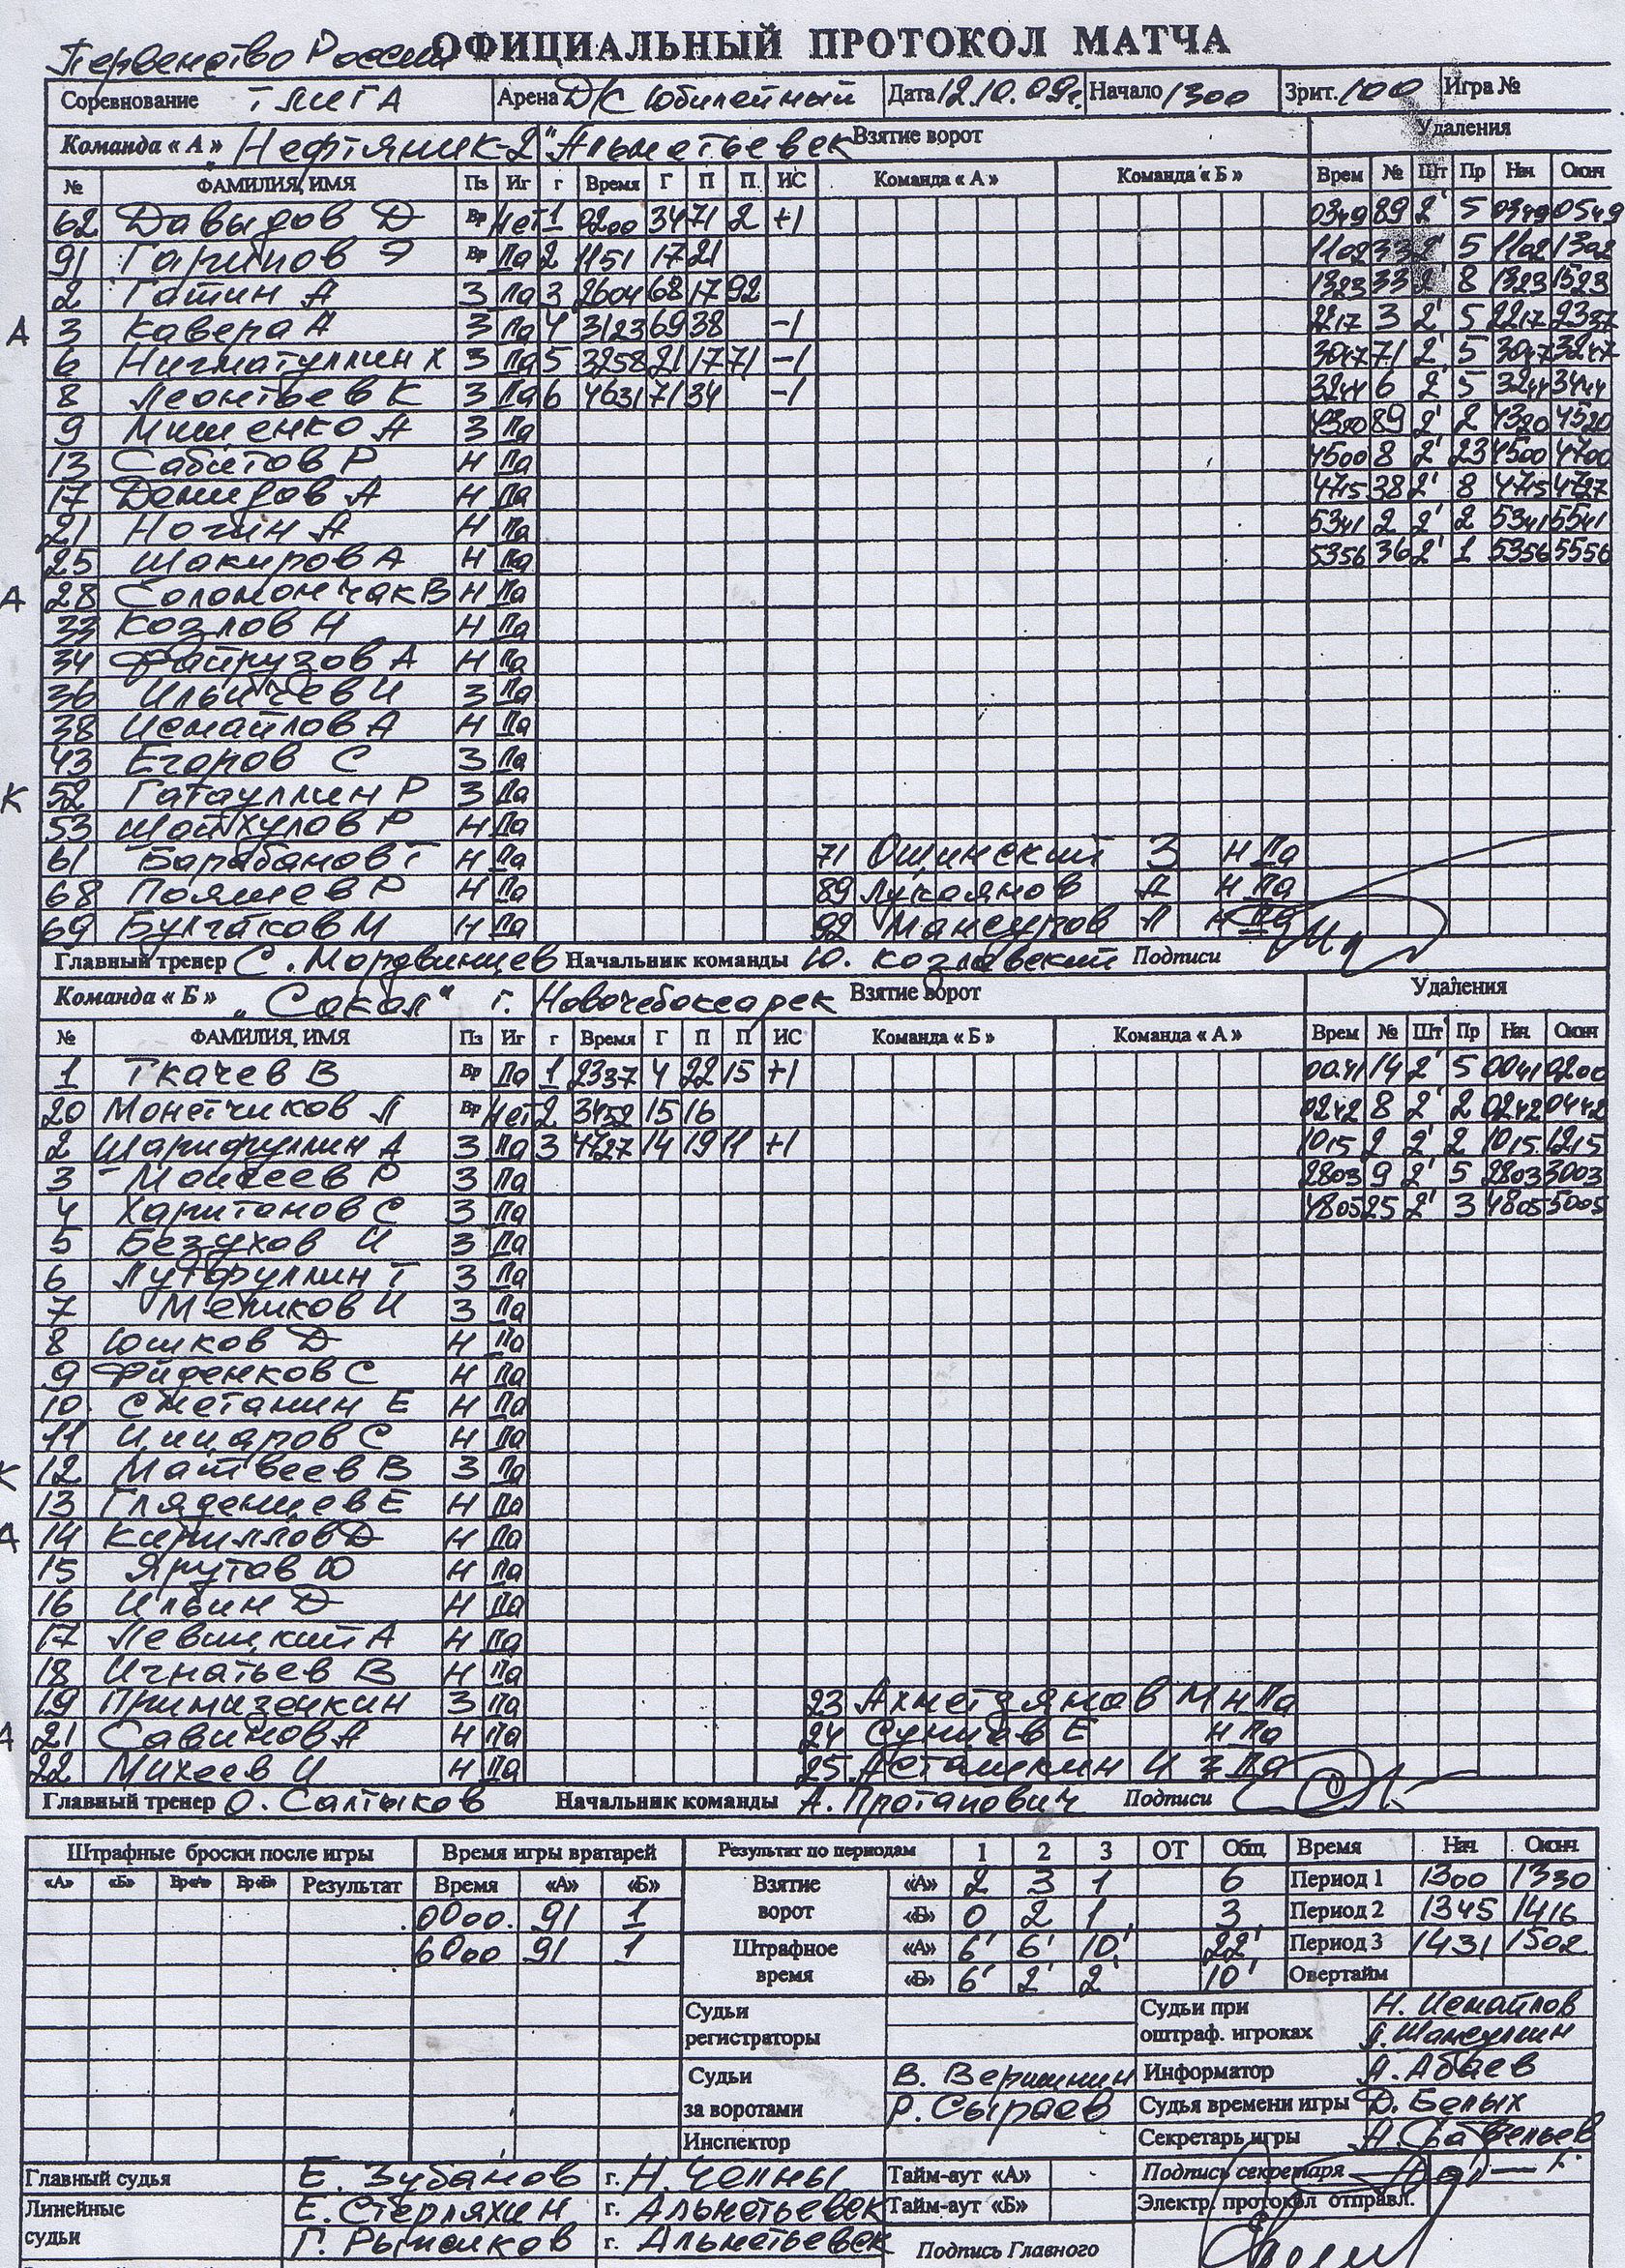 Первенство России ОФИЦИАЛЬНЫЙ ПРОТОКОЛ МАТЧА
Соревнование 1 ЛИГА Арена Д/С Юбилейный Дата 12.10.09г. Начало 1300 Зрит. 100 Игра №
Команда « А » "Нефтяник-2" Альметьевск Взятие ворот Удаления
№ ФАМИЛИЯ, ИМЯ Пз Иг г Время Г П П ИС Команда « А » Команда « Б » Врем № Шт Пр Нач Окон
62 Давыдов Д Вр Нет 1 0200 34 71 2 +1 0349 89 2' 5 0349 0549
91 Гарипов Э Вр Па 2 1151 17 21 1102 33 2' 5 1102 1302
2 Гатин А З Па 3 2604 68 17 92 1323 33 2' 8 1323 1523
А 3 Кавера А З Па 4 3123 69 38 -1 2217 3 2' 5 2217 2337
6 Нигматуллин Х З Па 5 3258 21 17 71 -1 3047 71 2' 5 3047 3247
8 Леонтьев К З Па 6 4631 71 34 -1 3244 6 2' 5 3244 3444
9 Мищенко А З Па 4320 89 2' 2 4320 4520
13 Сабитов Р Н Па 4500 8 2' 23 4500 4700
17 Демидов А Н Па 4715 38 2' 8 4715 4727
21 Ногин А Н Па 5341 2 2' 2 5341 5541
25 Шакиров А Н Па 5356 36 2' 1 5356 5556
А 28 Соломончак В Н Па
33 Козлов Н Н Па
34 Файрузов А Н Па
36 Ильичев И З Па
38 Исмайлов А Н Па
43 Егоров С З Па
К 52 Гатауллин Р З Па
53 Шайхулов Р Н Па
61 Барабанов Т Н Па 71 Ошинский З Н Па
68 Поляшев Р Н Па 89 Лукоянов А Н Па
69 Булгаков М Н Па 92 Мансуров Л Н Па
Главный тренер С. Мордвинцев Начальник команды Ю. Козловский Подписи
Команда « Б » „Сокол" г. Новочебоксарск Взятие ворот Удаления
№ ФАМИЛИЯ, ИМЯ Пз Иг г Время Г П П ИС Команда « Б » Команда « А » Врем № Шт Пр Нач Окон
1 Ткачев В Вр Па 1 2337 4 22 15 +1 0041 14 2' 5 0041 0200
20 Монетчиков Л Вр Нет 2 3452 15 16 0242 8 2' 2 0242 0442
2 Шарифуллин А З Па 3 4727 14 19 11 +1 1015 2 2' 2 1015 1215
3 Моисеев Р З Па 2803 9 2' 5 2803 3003
4 Харитонов С З Па 4805 25 2' 3 4805 5005
5 Безухов И З Па
6 Лутфуллин Т З Па
7 Меликов И З Па
8 Юшков Д Н Па
9 Фиденков С Н Па
10 Сметанин Е Н Па
11 С Н Па
К 12 Матвеев В З Па
13 Гляденцев Е Н Па
А 14 Кириллов Д Н Па
15 Ярутов Ю Н Па
16 Ильин Д Н Па
17 Левицкий А Н Па
18 Игнатьев В Н Па
19 Примизенкин З Па 23 Ахметзянов М Н Па
А 21 Савинов А Н Па 24 Е Н Па
22 Михеев И Н Па 25 Асташкин И З Па
Главный тренер О. Салтыков Начальник команды А. Протапович Подписи
Штрафные броски после игры Время игры вратарей Результат по периодам 1 2 3 ОТ Общ Время Нач. Окон.
«А» «Б» Вр«А» Вр«Б» Результат Время «А» «Б» Взятие ворот «А» 2 3 1 6 Период 1 1300 1330
0000 91 1 «Б» 0 2 1 3 Период 2 1345 1416
6000 91 1 Штрафное время «А» 6' 6' 10' 22' Период 3 1431 1502
«Б» 6' 2' 2' 10' Овертайм
Судьи регистраторы Судьи при оштраф. игроках Н. Исмайлов
Судьи за воротами В. Вершинин Информатор А. Абаев
Р. Сыраев Судья времени игры Д. Белых
Инспектор Секретарь игры А. Савельев
Главный судья Е. Зубанов г. Н. Челны Тайм-аут «А» Подпись секретаря
Линейные судьи Е. Стерляхин г. Альметьевск Тайм-аут «Б» Электр. протокол отправл.
Г. Рыжков г. Альметьевск Подпись Главного